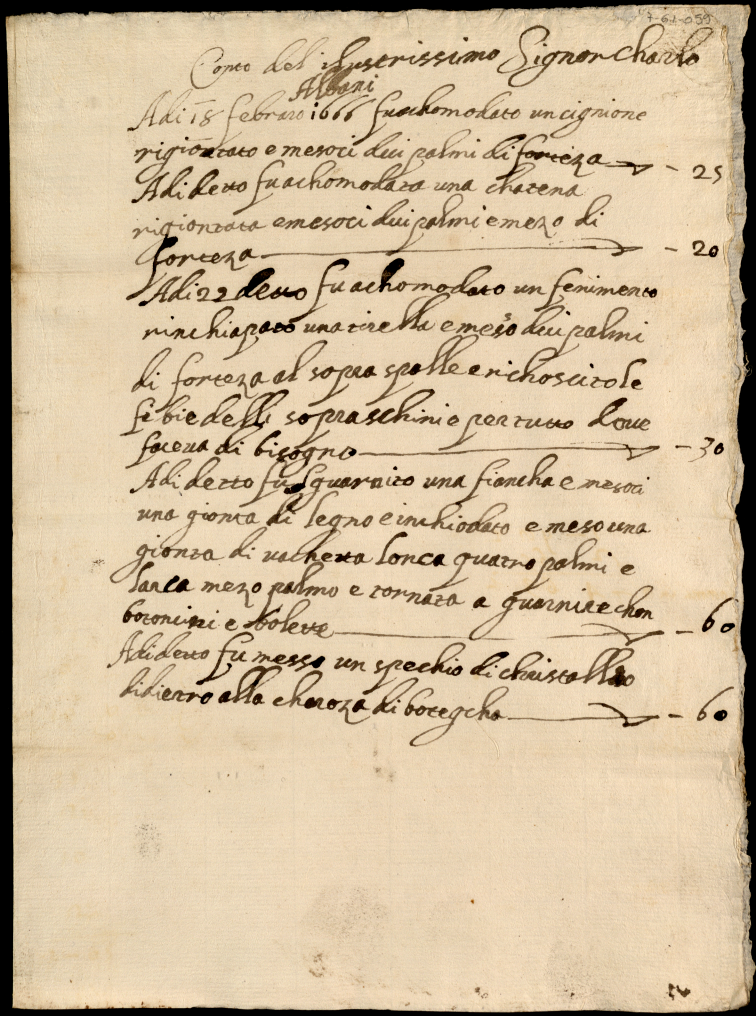 7-61-059
Conto del ilustrissimo Signor Charlo
Albani
Adi 18 febraro 1666 fu achomodato un cignione
rigiontato e mesoci dui palmi di forteza — 25
Adi detto fu achomodata una chatena
rigiontata e mesoci dui palmi e mezo di
forteza — 20
Adi 22 detto fu achomodato un fenimento
rinchiapato una tirella e meso dui palmi
di forteza al sopra spalle e richoscitole
fibie delli sopraschini e per tutto dove
faceva di bisogno — 30
Adi detto fu sguarnito una fiancha e mesoci
una gionta di legno e inchiodato e meso una
gionta di vachetta lonca quatro palmi e
larca mezo palmo e tornata a guarnire chon
botoncini e bolette — 60
Adi detto fu messo un spechio di christallo
di dietro alla charoza di botegcha — 60